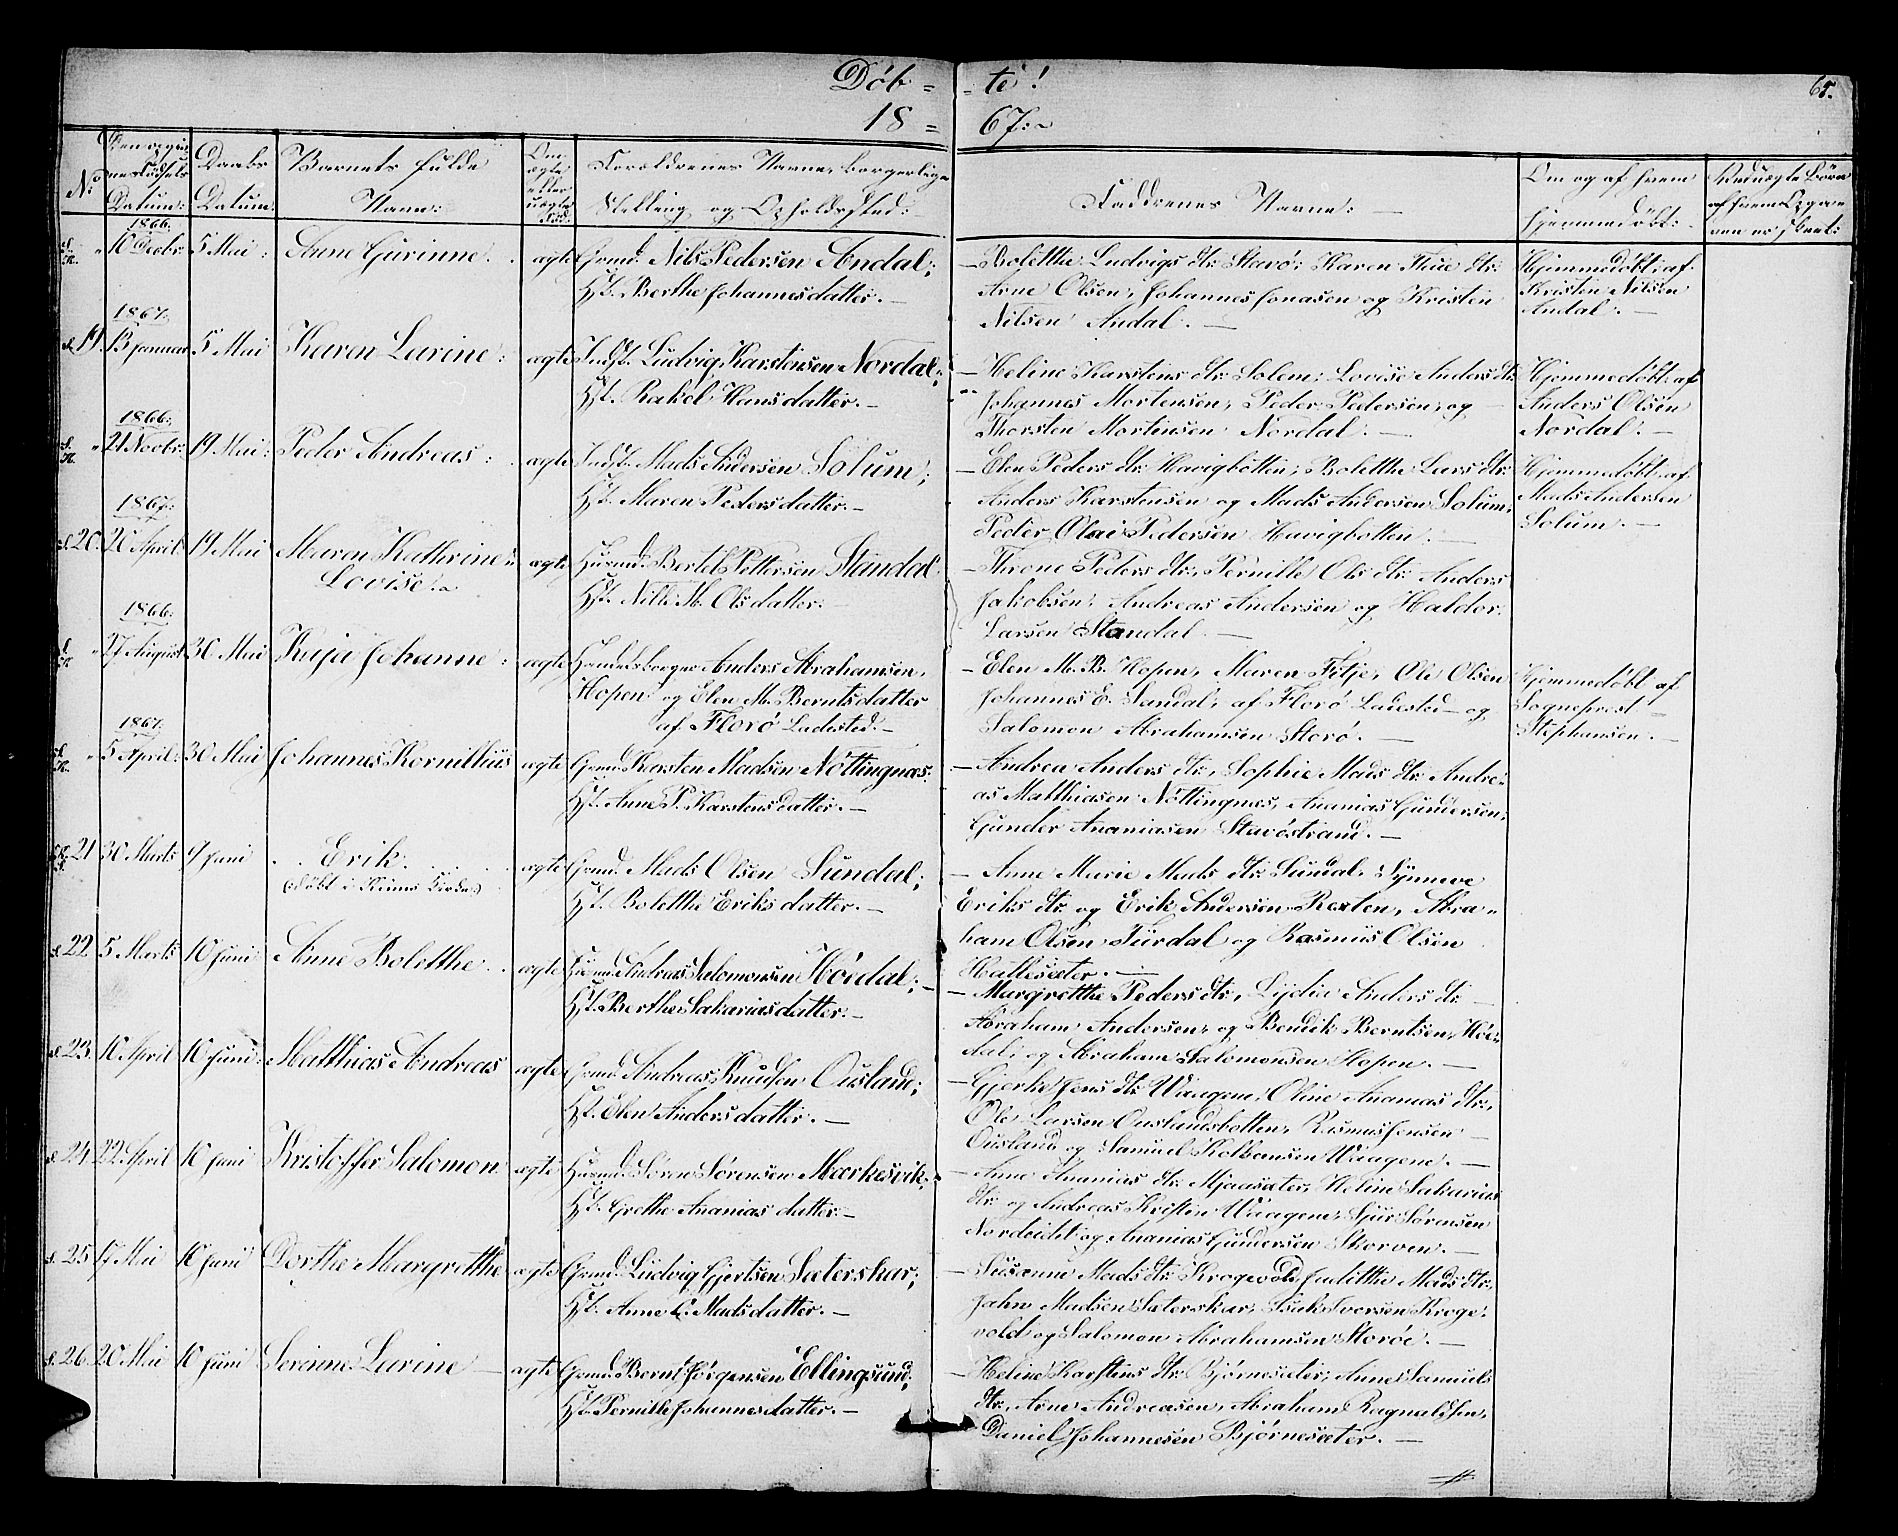 Döb = - te!
18 = 67:
65.
No
Datum:
Daabs
Datum:
Barnets fulde
Navn:
Om
ægte
eller
uægte
Forældrenes Navne, borgerlige
Stilling og Opholdssted:
Faddrenes Navne: —
Om og af hvem
hjemmedöbt:
1866:
10 Decbr. 5 Mai Anne Gurinne. ægte Grmd. Nils Pedersen Andal;
Hst. Berthe Johannesdatter. —
— Bolethe Ludvigs dtr. Storö, Karen Thue dtr.
Arne Olsen, Johannes Jonasen og Kristen
Nilsen Andal. —
Hjemmedöbt af
Kristen Nilsen
Andal.
1867:
19. 13 Januar 5 Mai Karen Lavine: ægte Indst. Ludvig Karstensen Nordal;
Hst. Rakel Hansdatter. —
— Heline Karstens dtr. Solem, Lovise Anders dtr.
Johannes Mortensen, Peder Pedersen, og
Thorsten Mortinsen Nordal. —
Hjemmedöbt af
Anders Olsen
Nordal. —
1866:
21 Novbr. 19 Mai Peder Andreas: ægte Indst. Mads Andersen Solum;
Hst. Maren Pedersdatter. —
— Elen Peders dtr. Havigbotten, Bolethe Lars dtr.
Anders Karstensen og Mads Andersen Solum,
Peder Olai Pedersen Havigbotten. —
Hjemmedöbt af
Mads Andersen
Solum. —
1867:
20. 20 April 19 Mai Maren Kathrine
Lovise: ægte Husmd. Bertel Pettersen Standal
Hst. Nille M. Olsdatter. —
— Throne Peders dtr., Pernille Ols dtr. Anders
Jakobsen, Andreas Andersen og Haldor
Larsen Standal. —
1866:
27 August 30 Mai Kaja Johanne: ægte Handelsborger Anders Abrahamsen,
Hopen og Elen M. Berntsdatter
af Florö Ladested. —
— Elen M. B. Hopen, Maren Fitje, Ole Olsen
Johannes E. Sandal, af Florö Ladested og
Salomon Abrahamsen Storö. —
Hjemmedöbt af
Sogneprest
Stephansen. —
1867:
5 April 30 Mai Johannes Kornillius ægte Grmd. Karsten Madsen Nöttingnæs.
Hst. Anne P. Karstensdatter. —
— Andrea Anders dtr., Sophie Mads dtr. Andre-
as Matthiasen Nöttingnes, Ananias Gundersen,
Gunder Ananiasen Stavöstrand. —
21 30 Marts 9 Juni Erik.
(döbt i Kinns Kirke) ægte Grmd. Mads Olsen Sundal;
Hst. Bolethe Eriksdatter. —
— Anne Marie Mads dtr. Sundal, Synneve
Eriks dtr. og Erik Andersen Rexten, Abra-
ham Olsen Turdal og Rasmus Olsen
Hallesæter. —
22. 5 Marts 10 Juni Anne Bolethe ægte Husmd. Andreas Salomonsen Höidal; —
Hst. Berthe Sakariasdatter. —
— Margrethe Peders dtr., Lydia Anders dtr. —
Abraham Andersen, og Bendik Berntsen, Höi-
dal, og Abraham Salomonsen Hopen. —
23. 10 April 10 Juni Matthias Andreas ægte Grmd. Andreas Knudsen Ousland;
Hst. Elen Andersdatter. —
— Gjertr. Jens dtr. Waagene, Oline Ananias dtr.,
Ole Larsen Ouslandsbotten, Rasmus Jensen
Ousland og Samuel Kolbensen Waagene. —
24. 22 April 10 Juni Kristoffer Salomon ægte Husmd. Sören Sörensen Markesvik;
Hst. Grethe Ananias datter. —
— Anne Ananias dtr. Mjaasæter, Heline Sakarias
dtr. og Andreas Kristen Waagene, Sjur Sörensen
Nordeidet og Ananias Gundersen Skorven. —
25. 17 Mai 10 Juni Dorthe Margrethe ægte Grmd. Ludvig Gjertsen Sæterskar;
Hst. Anne C. Madsdatter. —
— Susanne Mads dtr. Krogevold, Judithe Mads dtr.
Jahn Madsen Sæterskar, Isak Iversen Kroge-
vold og Salomon Abrahamsen Storöe. —
26. 20 Mai 10 Juni Serinne Lavine ægte Grmd. Bernt Jörgensen Ellingsund.
Hst. Pernille Johannesdatter. —
— Heline Karstens dtr. Björnesæter, Anne Samuels
dtr., Arne Andreasen, Abraham Ragnaldsen,
Daniel Johannesen Björnesæter. —